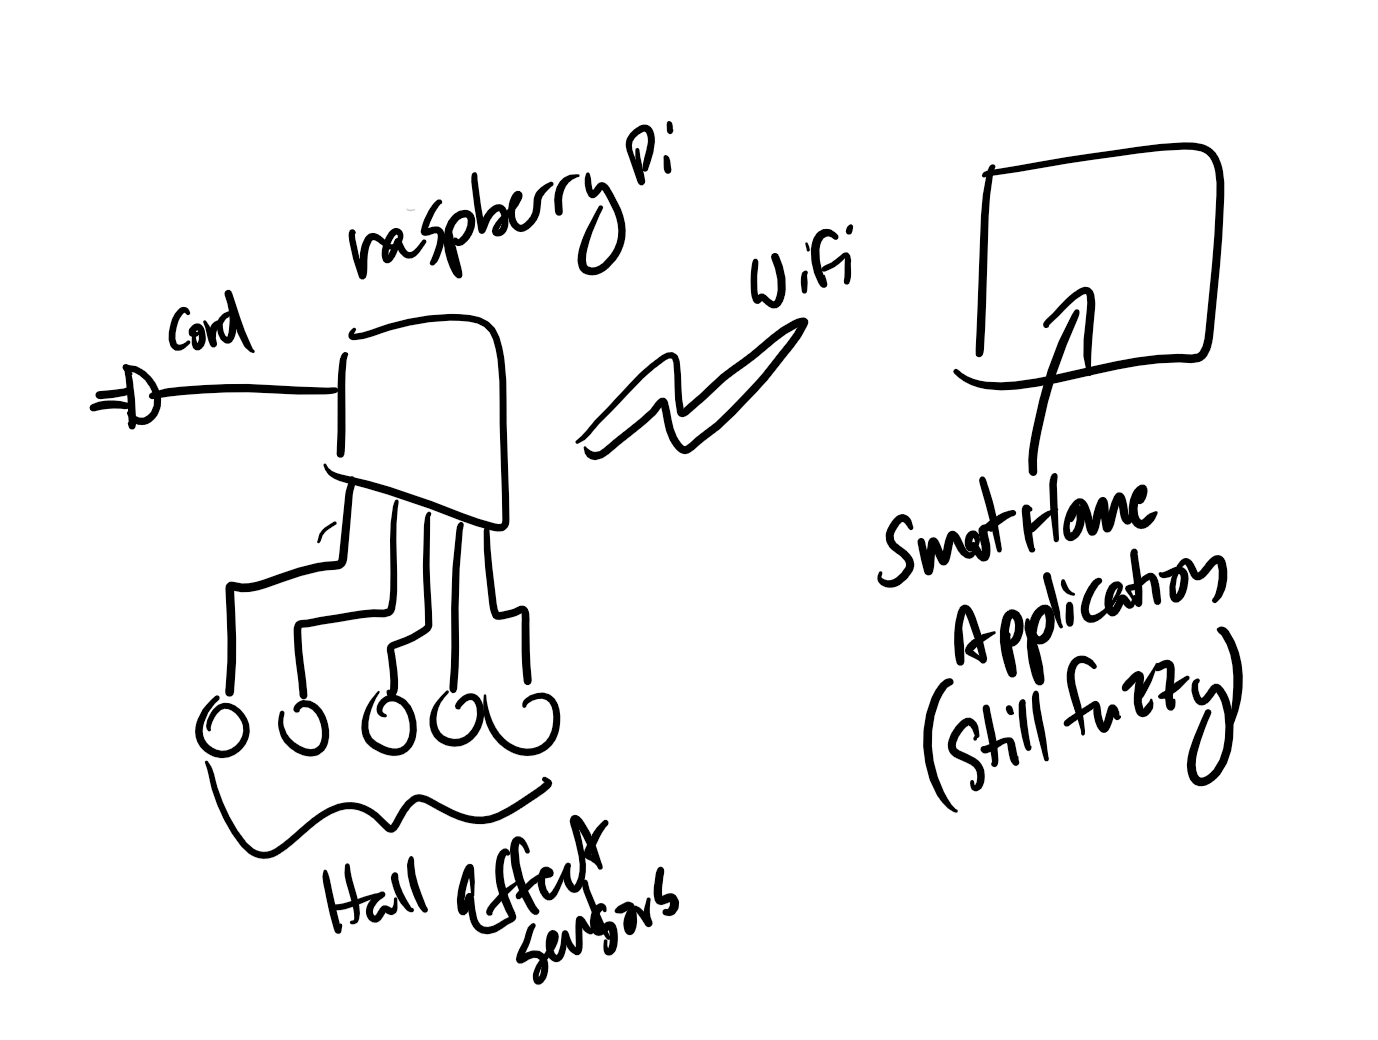 raspberry Pi
Cord
Wifi
Smart Home
Application
(Still fuzzy)
Hall effect
sensors